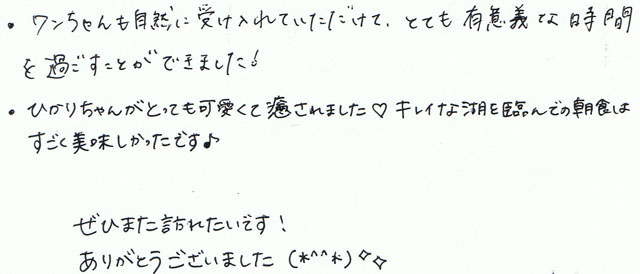 ・ワンちゃんも自然に受け入れていただけて、とても有意義な時間
を過ごすことができました!
・ひかりちゃんがとっても可愛くて癒されました♡ キレイな湖を臨んでの朝食は
すごく美味しかったです♪
ぜひまた訪れたいです!
ありがとうございました (*^^*)✧✧